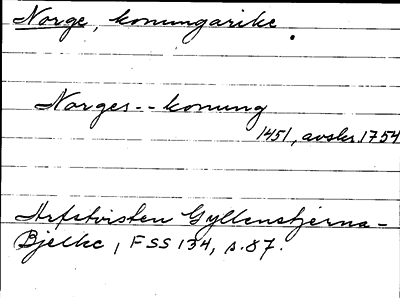 Norge, konungarike.
Norges -- konung
1451, avskr. 1754
Arfstvisten Gyllenstjerna -
Bjelke, FSS 134, s. 87.